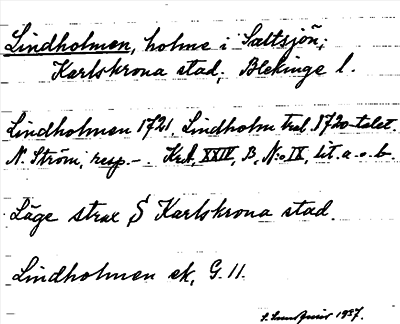 Lindholmen, holme i Saltsjön;
Karlskrona stad, Blekinge l.
Lindholmen 1721, Lindholm trol. 1720-talet.
N. Ström, resp. –. KrA, XXIV, B, N:o IX, lit. a. o. b.
Läge strax S Karlskrona stad.
Lindholmen ek, G. 11.
1937.